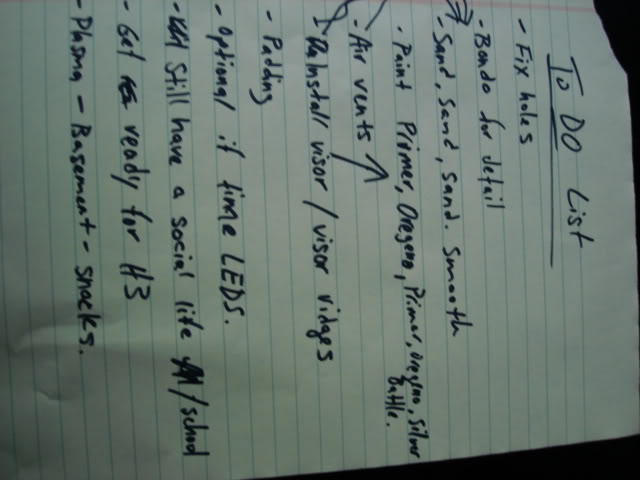 To DO List
- Fix holes
- Bondo for detail
- Sand, Sand, Sand. Smooth
- Paint Primer, Oregeno, Primer, Oregeno, Silver
Battle.
- Air vents
Install visor / visor ridges
- Padding
- Optional if time LEDS.
- Still have a social life / school
- Get ready for H3
- Plasma - Basement - snacks.